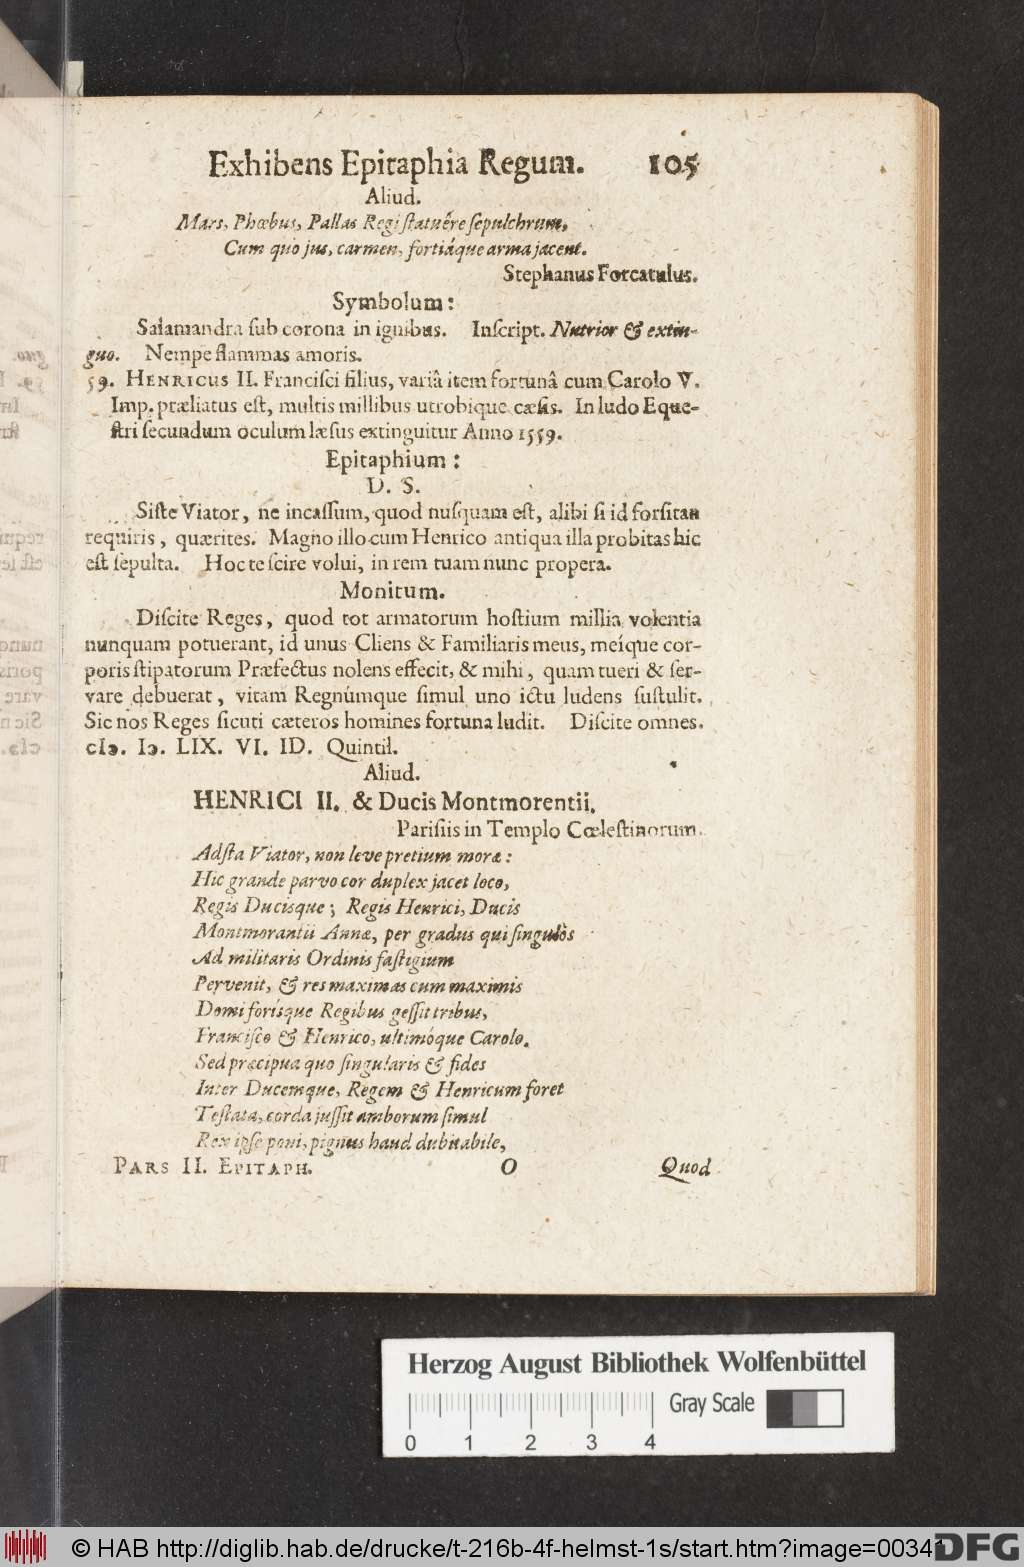 Exhibens Epitaphia Regum. 105
Aliud.
Mars, Phœbus, Pallas Regi ſtatuére ſepulchrum,
Cum quo jus, carmen, fortiáque arma jacent.
Stephanus Forcatulus.
Symbolum:
Salamandra ſub corona in ignibus. Inſcript. Nutrior & extin-
guo. Nempe flammas amoris.
59. HENRICUS II. Franciſci filius, variâ item fortunâ cum Carolo V.
Imp. præliatus eſt, multis millibus utrobique cæſis. In ludo Eque-
ſtri ſecundum oculum læſus extinguitur Anno 1559.
Epitaphium:
D. S.
Siſte Viator, ne incaſſum, quod nuſquam eſt, alibi ſi id forſitan
requiris, quærites. Magno illo cum Henrico antiqua illa probitas hic
eſt ſepulta. Hoc te ſcire volui, in rem tuam nunc propera.
Monitum.
Diſcite Reges, quod tot armatorum hoſtium millia volentia
nunquam potuerant, id unus Cliens & Familiaris meus, meíque cor-
poris ſtipatorum Præfectus nolens effecit, & mihi, quam tueri & ſer-
vare debuerat, vitam Regnúmque ſimul uno ictu ludens ſuſtulit.
Sic nos Reges ſicuti cæteros homines fortuna ludit. Diſcite omnes.
cIↄ. Iↄ. LIX. VI. ID. Quintil.
Aliud.
HENRICI II. & Ducis Montmorentii.
Pariſiis in Templo Cœleſtinorum.
Adſta Viator, non leve pretium moræ:
Hic grande parvo cor duplex jacet loco,
Regis Ducisque; Regis Henrici, Ducis
Montmorantii Annæ, per gradus qui ſingulos
Ad militaris Ordinis faſtigium
Pervenit, & res maximas cum maximis
Domi forísque Regibus geſſit tribus,
Franciſco & Henrico, ultimóque Carolo.
Sed præcipua quo ſingularis & fides
Inter Ducemque, Regem & Henricum foret
Teſtata, corda juſſit amborum ſimul
Rex ipſe poni, pignus haud dubitabile,
PARS II. EPITAPH. O Quod
Herzog August Bibliothek Wolfenbüttel
Gray Scale
0 1 2 3 4
© HAB http://diglib.hab.de/drucke/t-216b-4f-helmst-1s/start.htm?image=00341
DFG